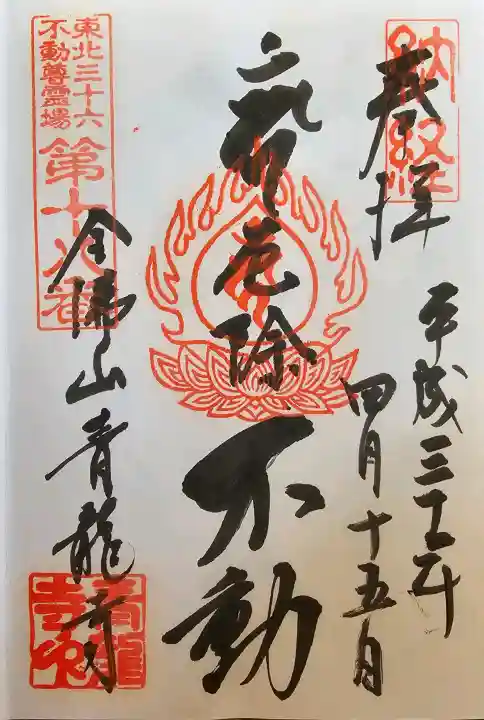 奉拝
納経
平成三十一年
四月十五日
厄除不動
東北三十六
不動尊霊場
第十八番
全佛山青龍寺
青龍
寺印